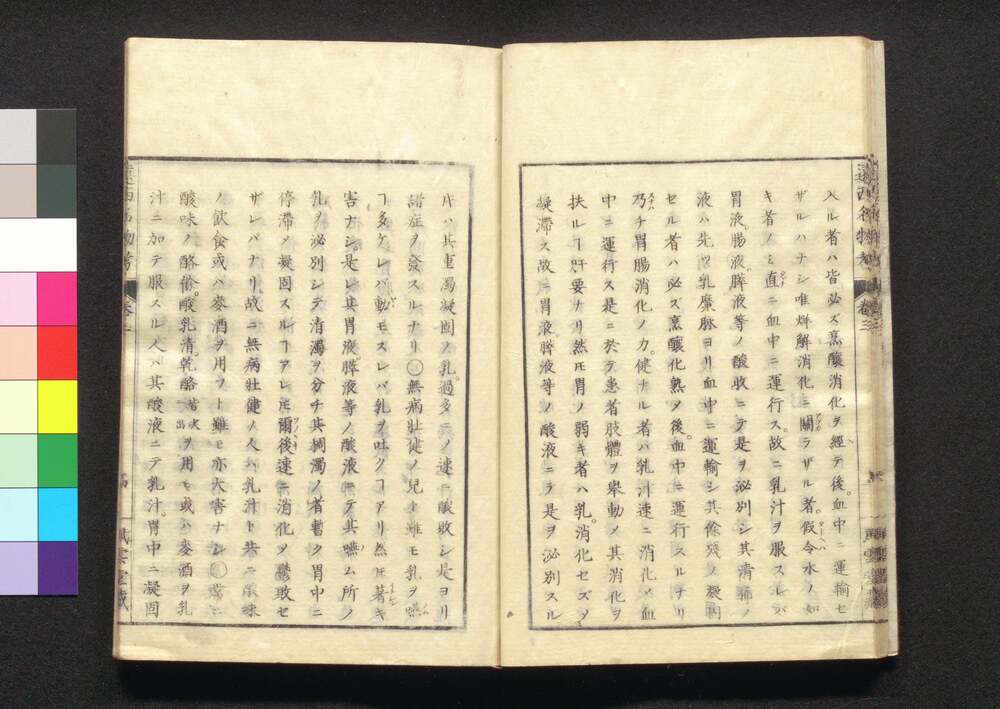 入ル者ハ皆必ズ烹醸消化ヲ經テ後。血中ニ運輸セ
ザルハナシ唯烊解消化ニ關ラザル者。假令水ノ如
キ者ノミ直ニ血中ニ運行ス。故ニ乳汁ヲ服スレバ
胃液。腸液。膵液等ノ酸敗ニテ是ヲ泌別シ其清稀ノ
液ハ先ヅ乳糜脉ヨリ血中ニ運輸シ其餘殘ノ凝固
セル者ハ必ズ烹釀化熟メ後。血中ニ運行スルナリ
乃チ胃腸消化ノ力。健ナル者ハ乳汁速ニ消化メ血
中ニ運行ス是ニ於テ患者肢體ヲ舉動メ其消化ヲ
扶ルヿ肝要ナリ然𪜈胃ノ弱キ者ハ乳。消化セズメ
凝滞ス故ニ胃液膵液等ノ酸液ニテ是ヲ泌別スル
片ハ其重濁凝固ノ乳。過多ニメ速ニ酸敗シ是ヨリ
諸症ノ發スルナリ○無病壮健ノ兒ト雖モ乳ヲ嚥
ヿ多ケレバ動モスレバ乳ヲ吐クヿアリ然𪜈著キ
害ナシ。是レ其胃液。膵液等ノ酸液ニテ其嚥ム所ノ
乳ヲ泌別シテ清濁ヲ分チ其稠濁ノ者暫ク胃中ニ
停滞メ凝固スルヿアレ𪜈爾後速ニ消化メ鬱敗セ
ザレバナリ故ニ無病壮健ノ人ハ乳汁ト共ニ酸味
ノ飲食或ハ麥酒ヲ用フト雖モ亦大害ナシ○常ニ
酸味ノ酪脩。酸乳清。乾酪皆次ニ出ヲ用ヒ或ハ麥酒ヲ乳
汁ニ加テ服スル人ハ其酸液ニテ乳汁。胃中ニ凝固